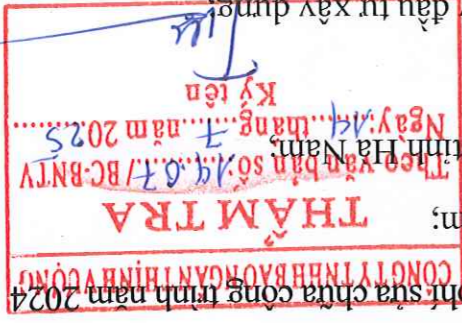 phí sửa chữa công trình năm 2024
CÔNG TY TNHH BẢO NGÂN THỊNH VƯỢNG
THẨM TRA
m;
Theo văn bản số: 14.07/BC-BNTV
tỉnh Hà Nam;
Ngày: 14 tháng 7 năm 2025
Ký tên
đầu tư xây dựng;